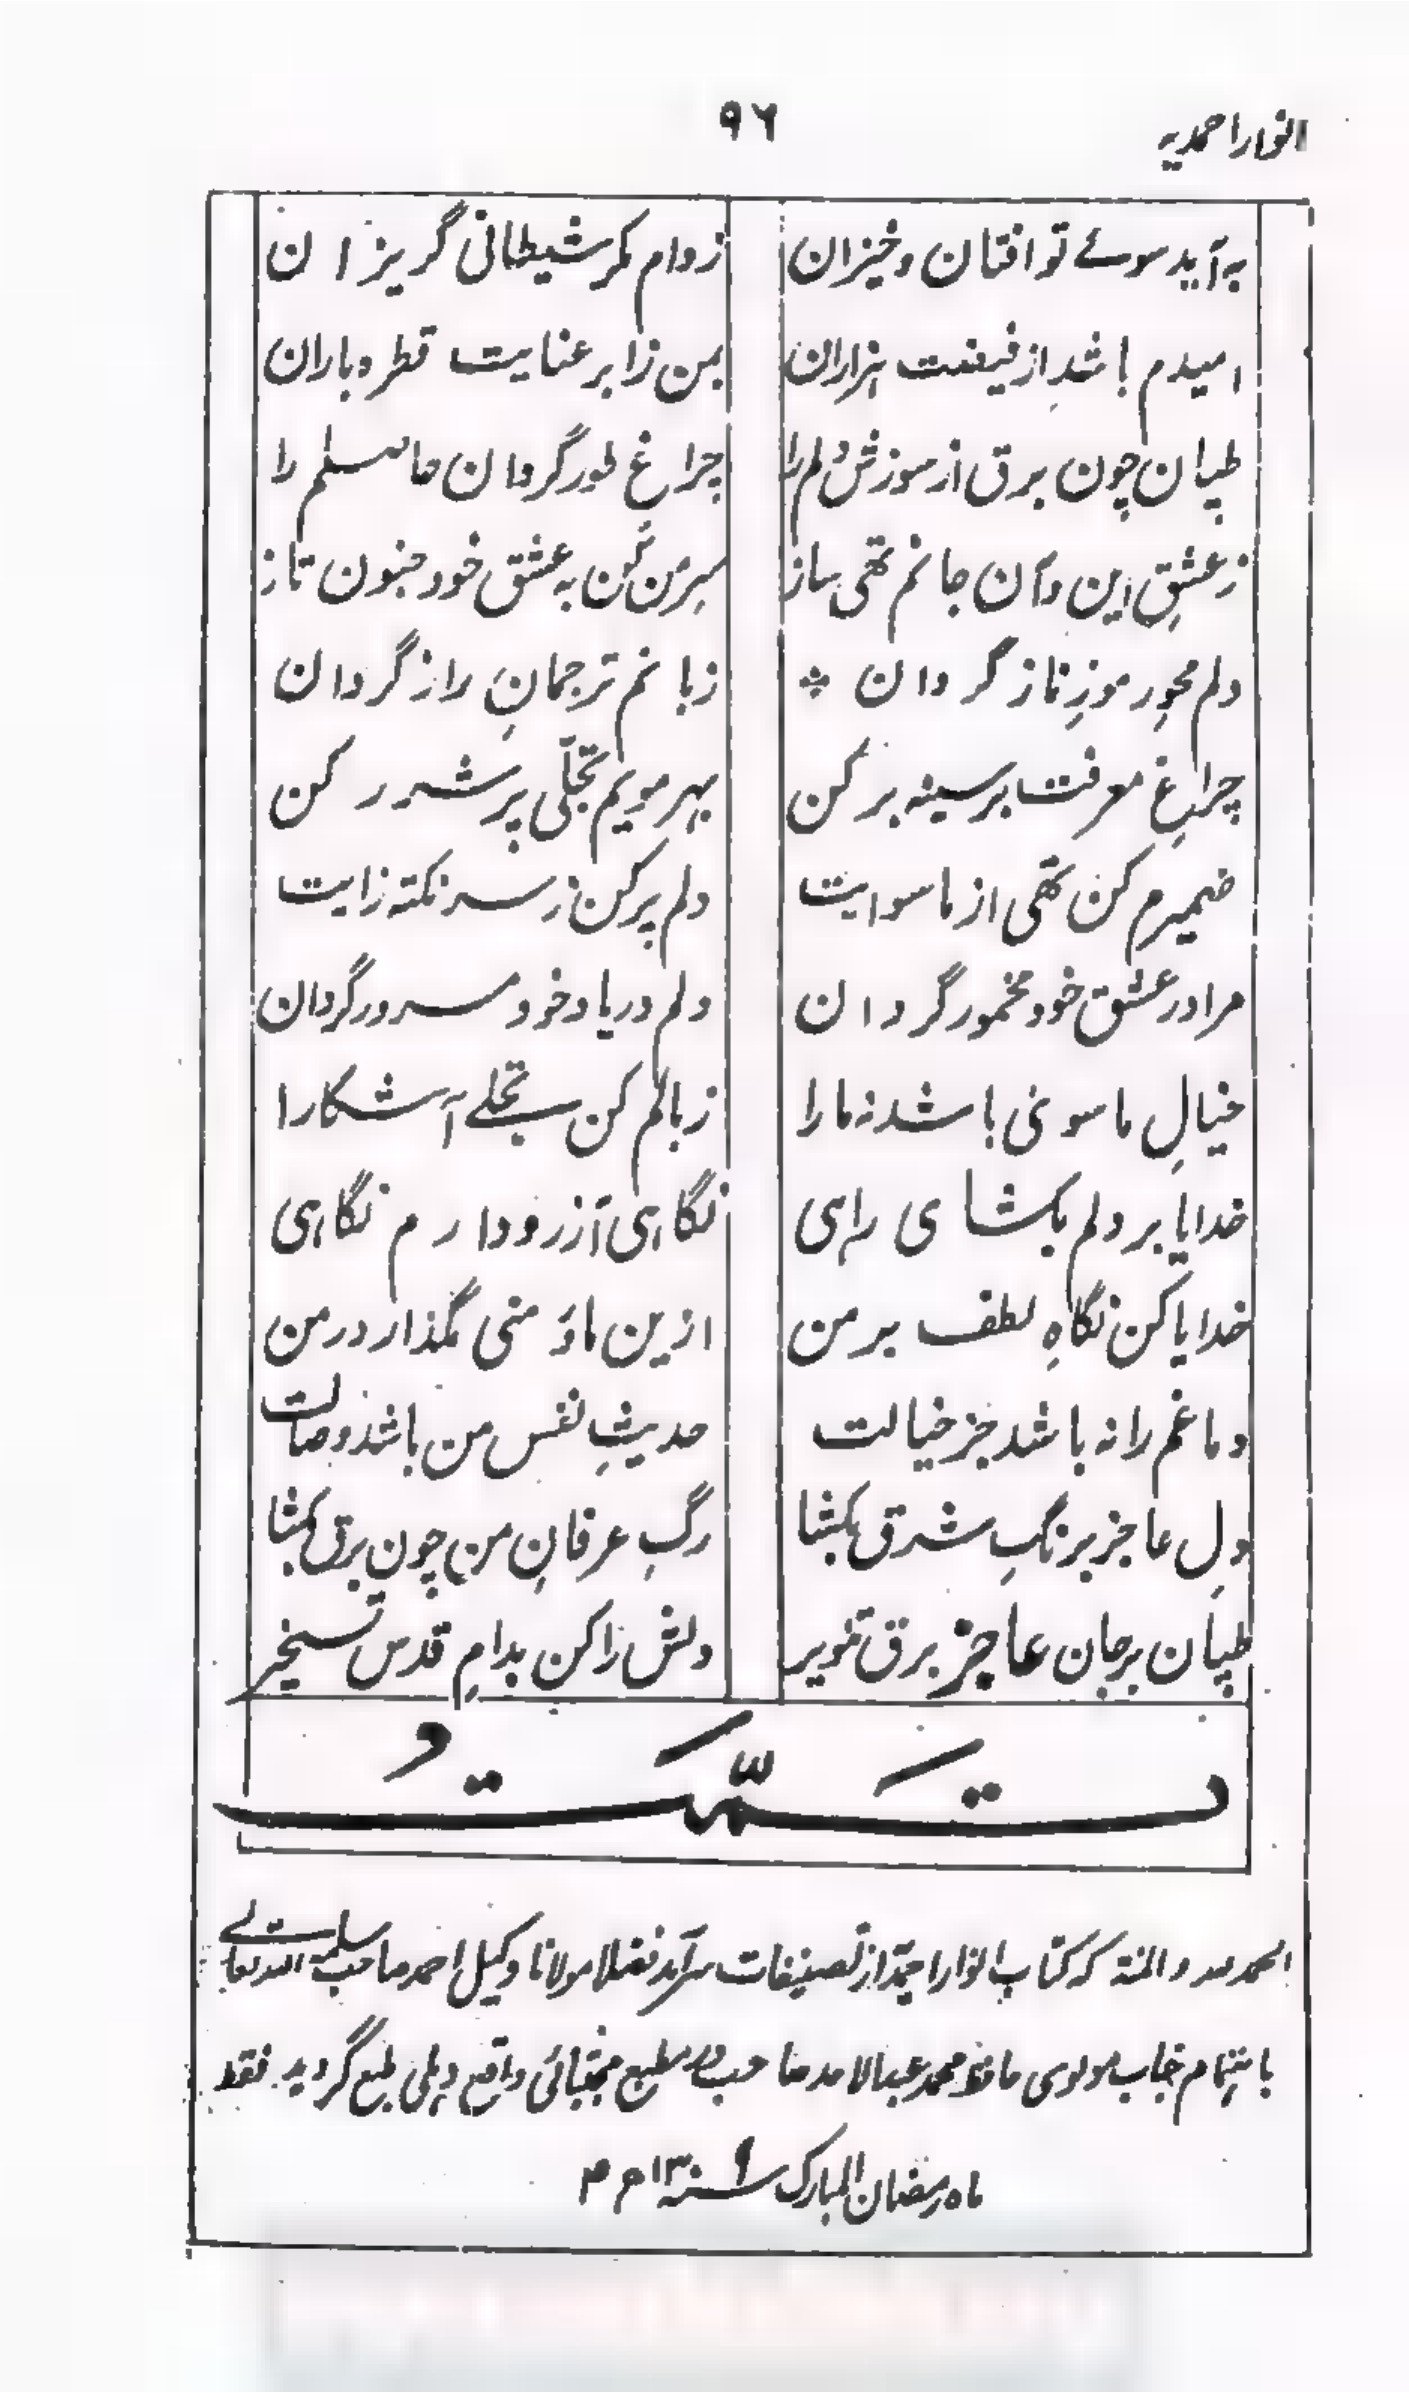 انوار احمدیہ
۹۶
به آید سوئے تو افتان و خیزان زدام مکر شیطانی گریزان
امیدم باشد از فیضت ہزاران بمن زابر عنایت قطرہ باران
طپان چون برق از سوزش دلم را چراغ طور گردان حاصلم را
زعشقِ این و آن جانم تهی ساز سرمن کن به عشق خود جنون تاز
دلم محوِ رموزِ ناز گردان ٭ زبانم ترجمانِ راز گردان
چراغِ معرفت بر سینه بر کن بہر مویم تجلّی پر شرر کن
ضمیرم کن تهی از ماسوایت دلم پر کن ز سر نکته زایت
مرا در عشق خود مخمور گردان دلم در یاد خود مسرور گردان
خیالِ ماسویٰ باشد نه ما را زبالم کن تجلے آشکارا
خدایا بر دلم بکشای راہی نگاہی آرزو دارم نگاہی
خدایا کن نگاهِ لطف بر من ازین ماؤ منی مگذار در من
دماغم را نه باشد جز خیالت حدیثِ نفس من باشد وصالت
دلِ عاجز برنگِ شرق بکشا رگِ عرفانِ من چون برق بکشا
طپان برجان عاجز برق تنویر دلش را کن بدامِ قدس تسخیر
تمّت
الحمد لله و المنة که کتاب انوار احمدیہ از تصنیفات سرآمد فضلا مولانا وکیل احمد صاحب سلمه الله تعالے
باہتمام جناب مولوی حافظ محمد عبدالاحد صاحب در مطبع مجتبائی واقع دہلی طبع گردید فقط
ماہ رمضان المبارک سنه ۱۳۰۹